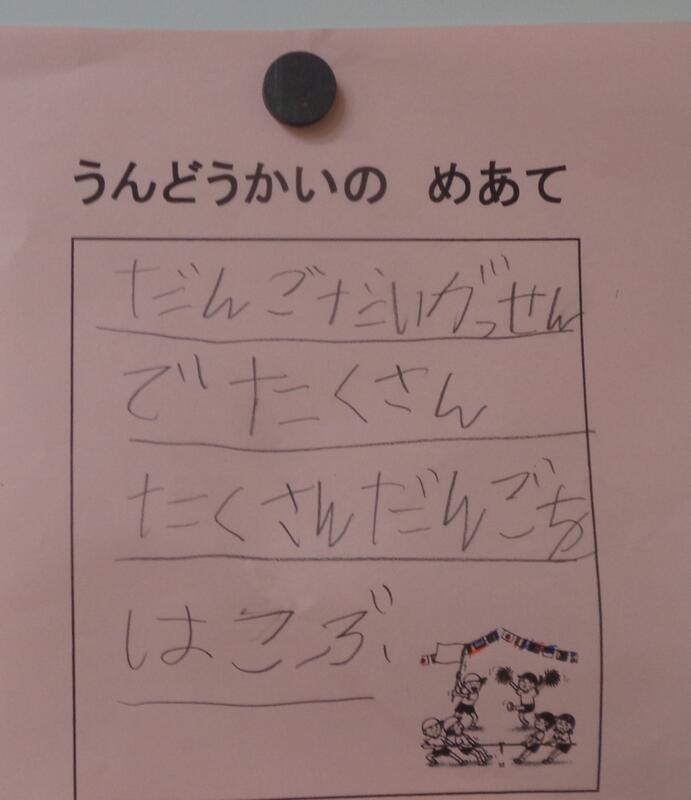 うんどうかいの めあて
だんごだいがっせん
でたくさん
たくさんだんごを
はこぶ